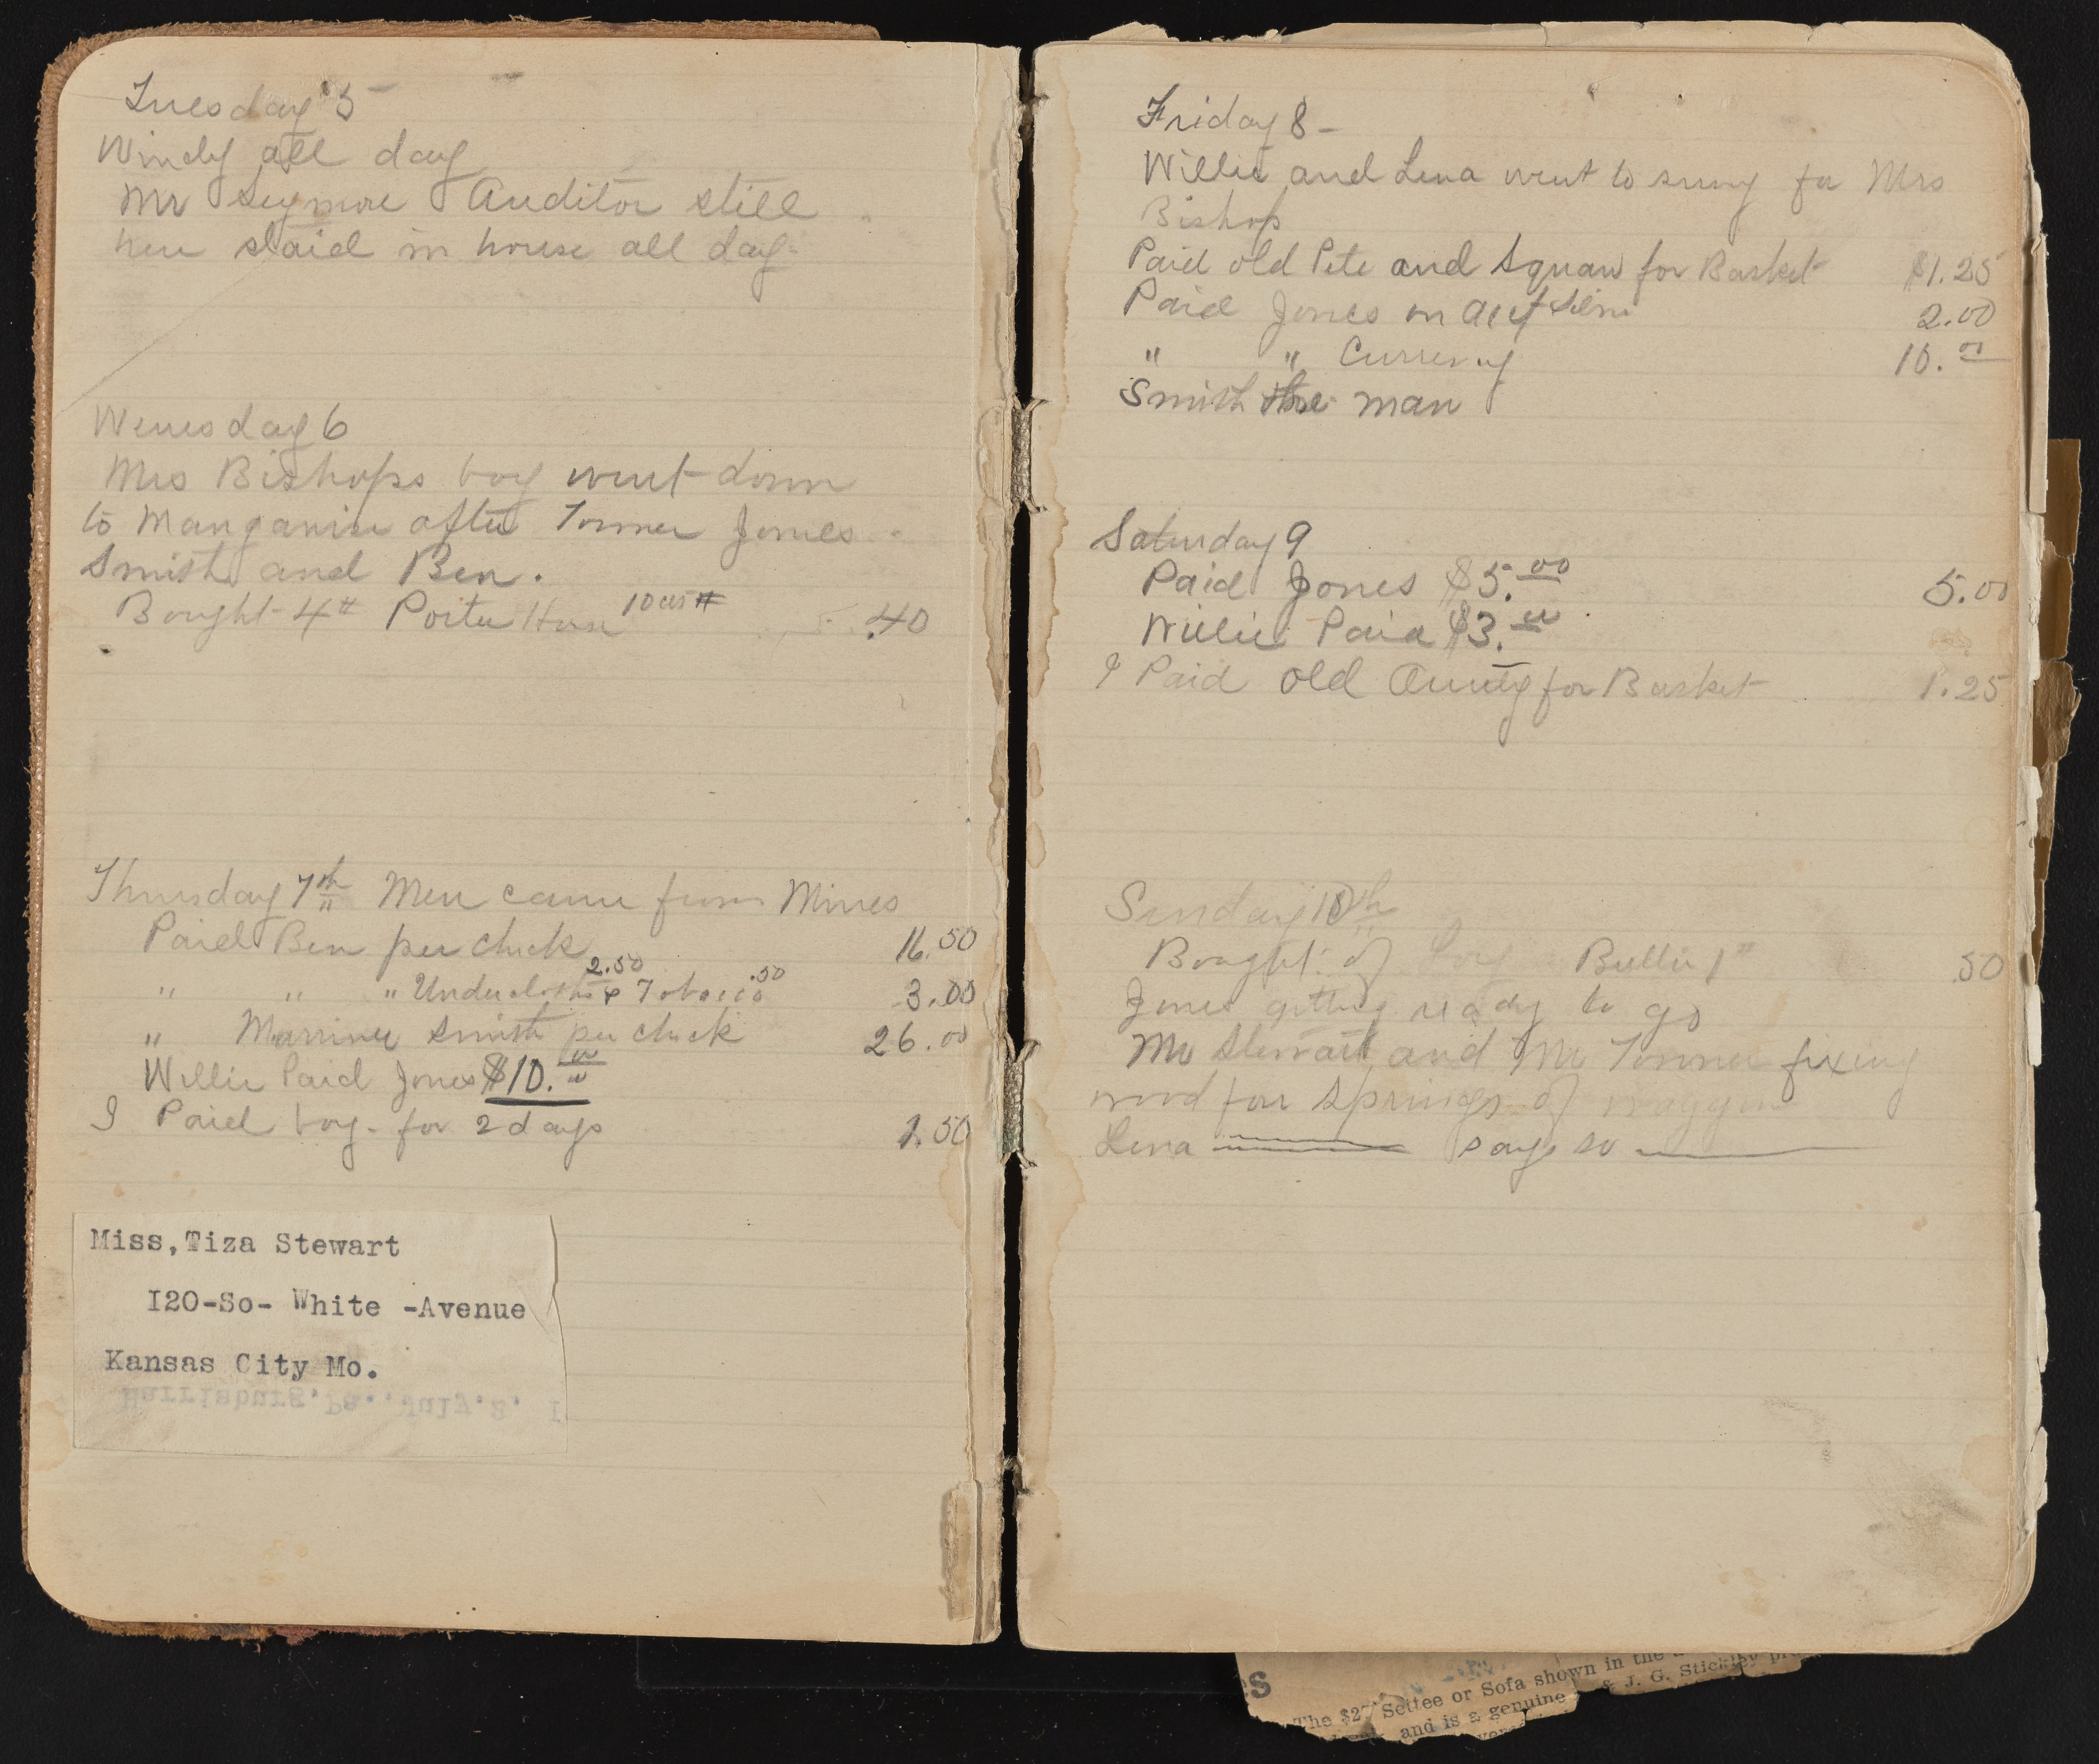 Tuesday 5
Windy all day
Mr Seymore Auditor still
here staid in house all day.
Wenesday 6
Mrs Bishops boy went down
to Manganise after Tonner Jones
Smith and Ben.
Bought 4# Porter House 10cts # .40
Thursday 7th Men came from Mines
Paid Ben per check 16.50
2.50 .50
" " " Undercloths & Tobacco 3.00
" Marriner Smith per check 26.00
Willie Paid Jones $10.00
I Paid boy for 2 days 1.50
Miss,Tiza Stewart
120-So- White -Avenue
Kansas City Mo.
Harrisburg, Pa., July.2, I
Friday 8 -
Willie and Lena went to for Mrs
Bishop
Paid old Pete and Squaw for Basket $1.25
Paid Jones on acct 2.00
" " Currency 10.00
Smith the man
Saturday 9
Paid Jones $5.00 5.00
Willie Paid $3.00
I Paid old Aunty for Basket 1.25
Sunday 10th
Bought of Butter 1# .50
Jones getting ready to go
Mr Stewart and Mr Tonner fixing
wood for springs of waggon
Lena says so
s
The $27 Settee or Sofa shown in the
& J. G. Stickley
and is a genuine